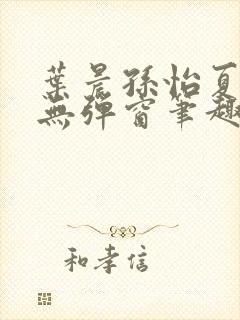 葉晨孫怡夏
無彈窗筆趣
和孝信